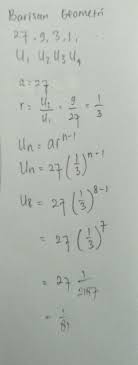 Barisan Geometri
27, 9, 3, 1,
U₁ U₂ U₃ U₄
a = 27
r = U₂/U₁ = 9/27 = 1/3
Un = arⁿ⁻¹
Un = 27 (1/3)ⁿ⁻¹
U₈ = 27 (1/3)⁸⁻¹
= 27 (1/3)⁷
= 27 1/2187
= 1/81